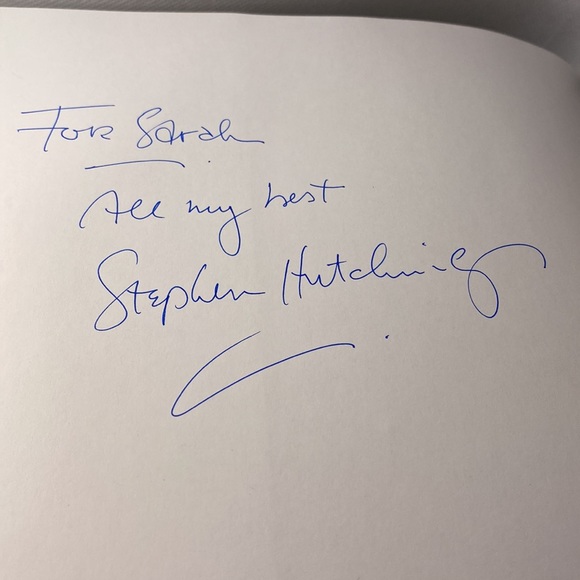 For Sarah
All my best
Stephen Hutchings